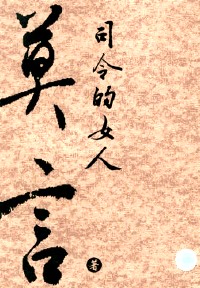 莫言
司令的女人
著